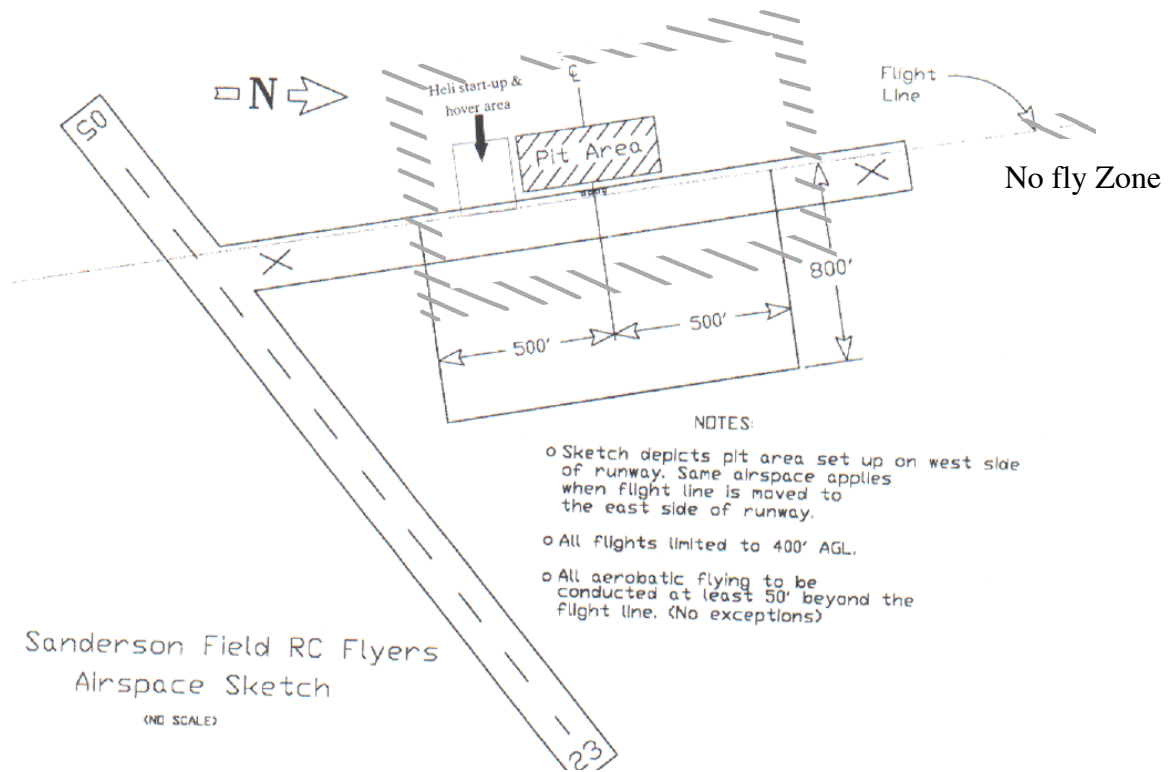 N
Heli start-up &
hover area
℄
Pit Area
Flight
Line
No fly Zone
05
X
X
800'
500'
500'
NOTES:
o Sketch depicts pit area set up on west side
of runway. Same airspace applies
when flight line is moved to
the east side of runway.
o All flights limited to 400' AGL.
o All aerobatic flying to be
conducted at least 50' beyond the
flight line. (No exceptions)
Sanderson Field RC Flyers
Airspace Sketch
(NO SCALE)
23